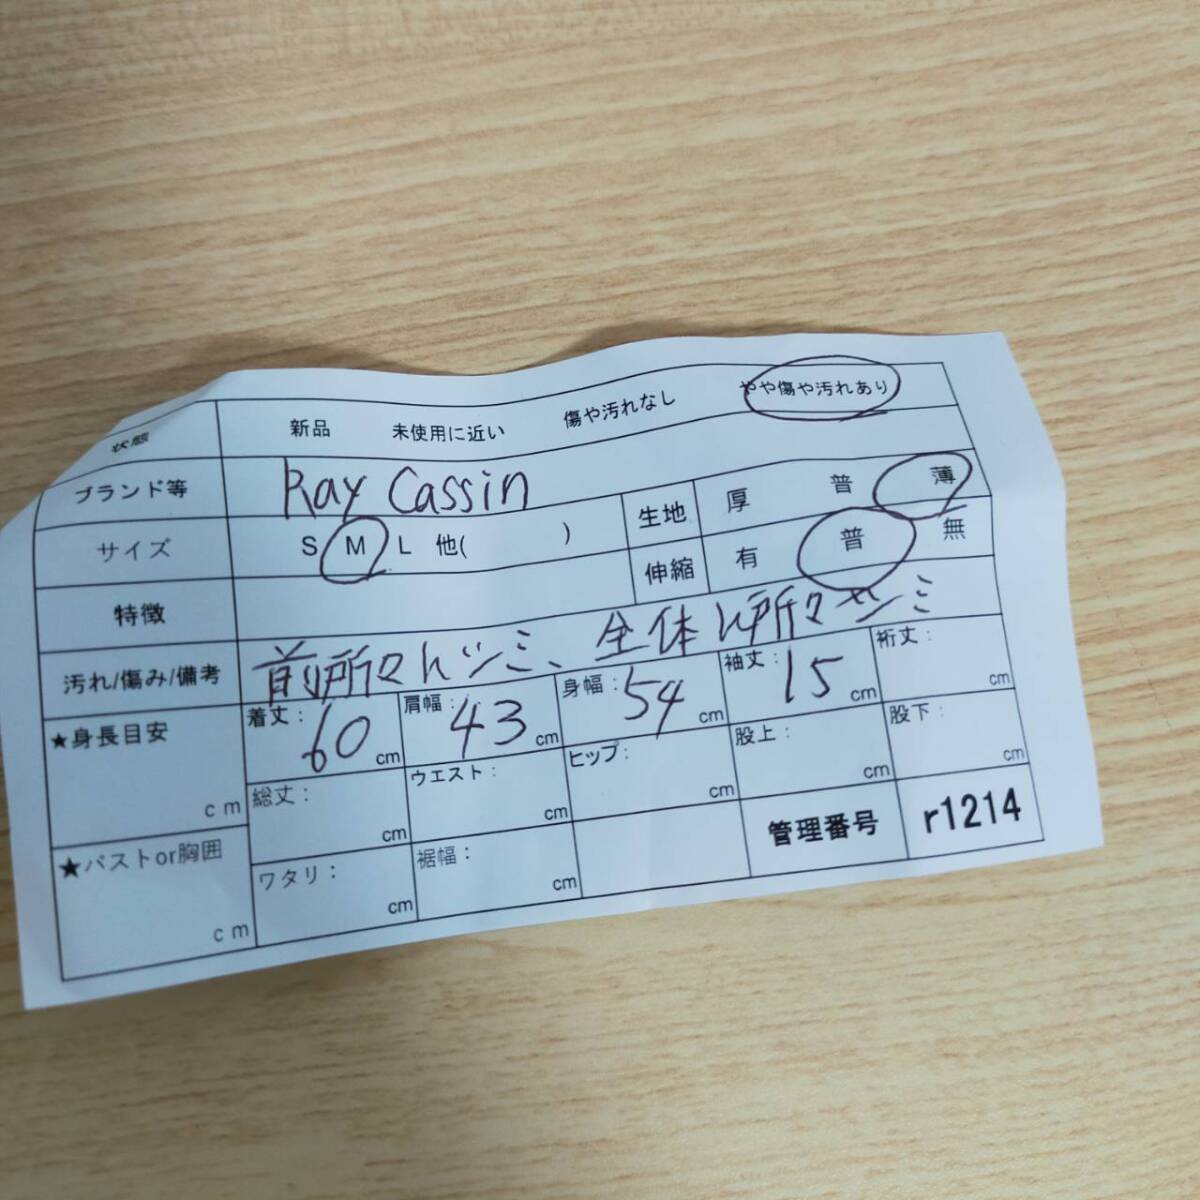 状態 新品 未使用に近い 傷や汚れなし やや傷や汚れあり
ブランド等 Ray Cassin
サイズ S M L 他( )
生地 厚 普 薄
伸縮 有 普 無
特徴
汚れ/傷み/備考 前所々にシミ、全体に所々シミ
★身長目安 cm
着丈: 60 cm 肩幅: 43 cm 身幅: 54 cm 袖丈: 15 cm 裄丈: cm
総丈: cm ウエスト: cm ヒップ: cm 股上: cm 股下: cm
★バストor胸囲 cm
ワタリ: cm 裾幅: cm
管理番号 r1214